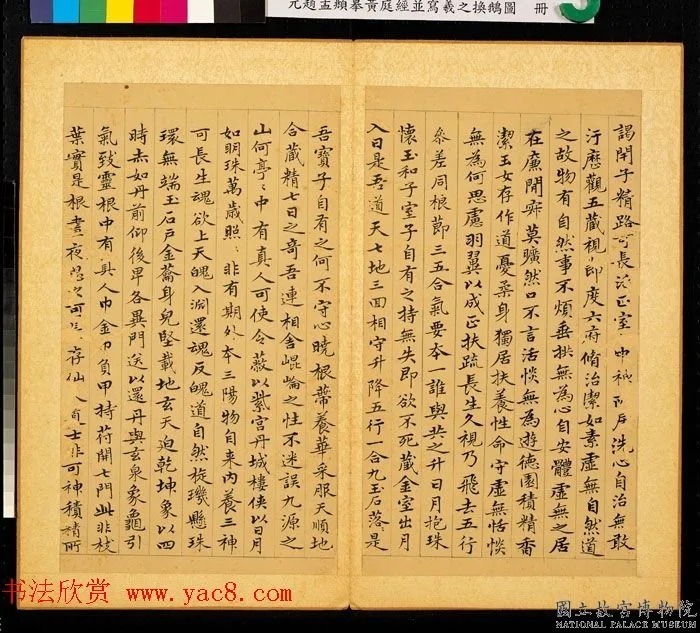 元趙孟頫摹黃庭經並寫羲之換鵝圖 冊
謁閉子精路可長 正室 中神 戶洗心自治無敢
汙歷觀五藏視節度六府脩治潔如素虛無自然道
之故物有自然事不煩垂拱無為心自安體虛無之居
在廉閒寂莫曠然口不言恬惔無為遊德園積精香
潔玉女存作道憂柔身獨居扶養性命守虛無恬惔
無為何思慮羽翼以成正扶疏長生久視乃飛去五行
參差同根節三五合氣要本一誰與共之升日月抱珠
懷玉和子室子自有之持無失即欲不死藏金室出月
入日是吾道天七地三回相守升降五行一合九玉石落是
吾寶子自有之何不守心曉根蒂養華采服天順地
合藏精七日之奇吾連相舍崐崘之性不迷誤九源之
山何亭〻中有真人可使令蔽以紫宮丹城樓俠以日月
如明珠萬歲照〻非有期外本三陽物自來內養三神
可長生魂欲上天魄入淵還魂反魄道自然旋璣懸珠
環無端玉石戶金籥身兒堅載地玄天迫乾坤象以四
時赤如丹前仰後卑各異門送以還丹與玄泉象龜引
氣致靈根中有真人巾金巾負甲持苻開七門此非枝
葉實是根晝夜思之可 存仙人 士非可神積精所
书法欣赏 www.yac8.com
國立故宮博物院
NATIONAL PALACE MUSEUM